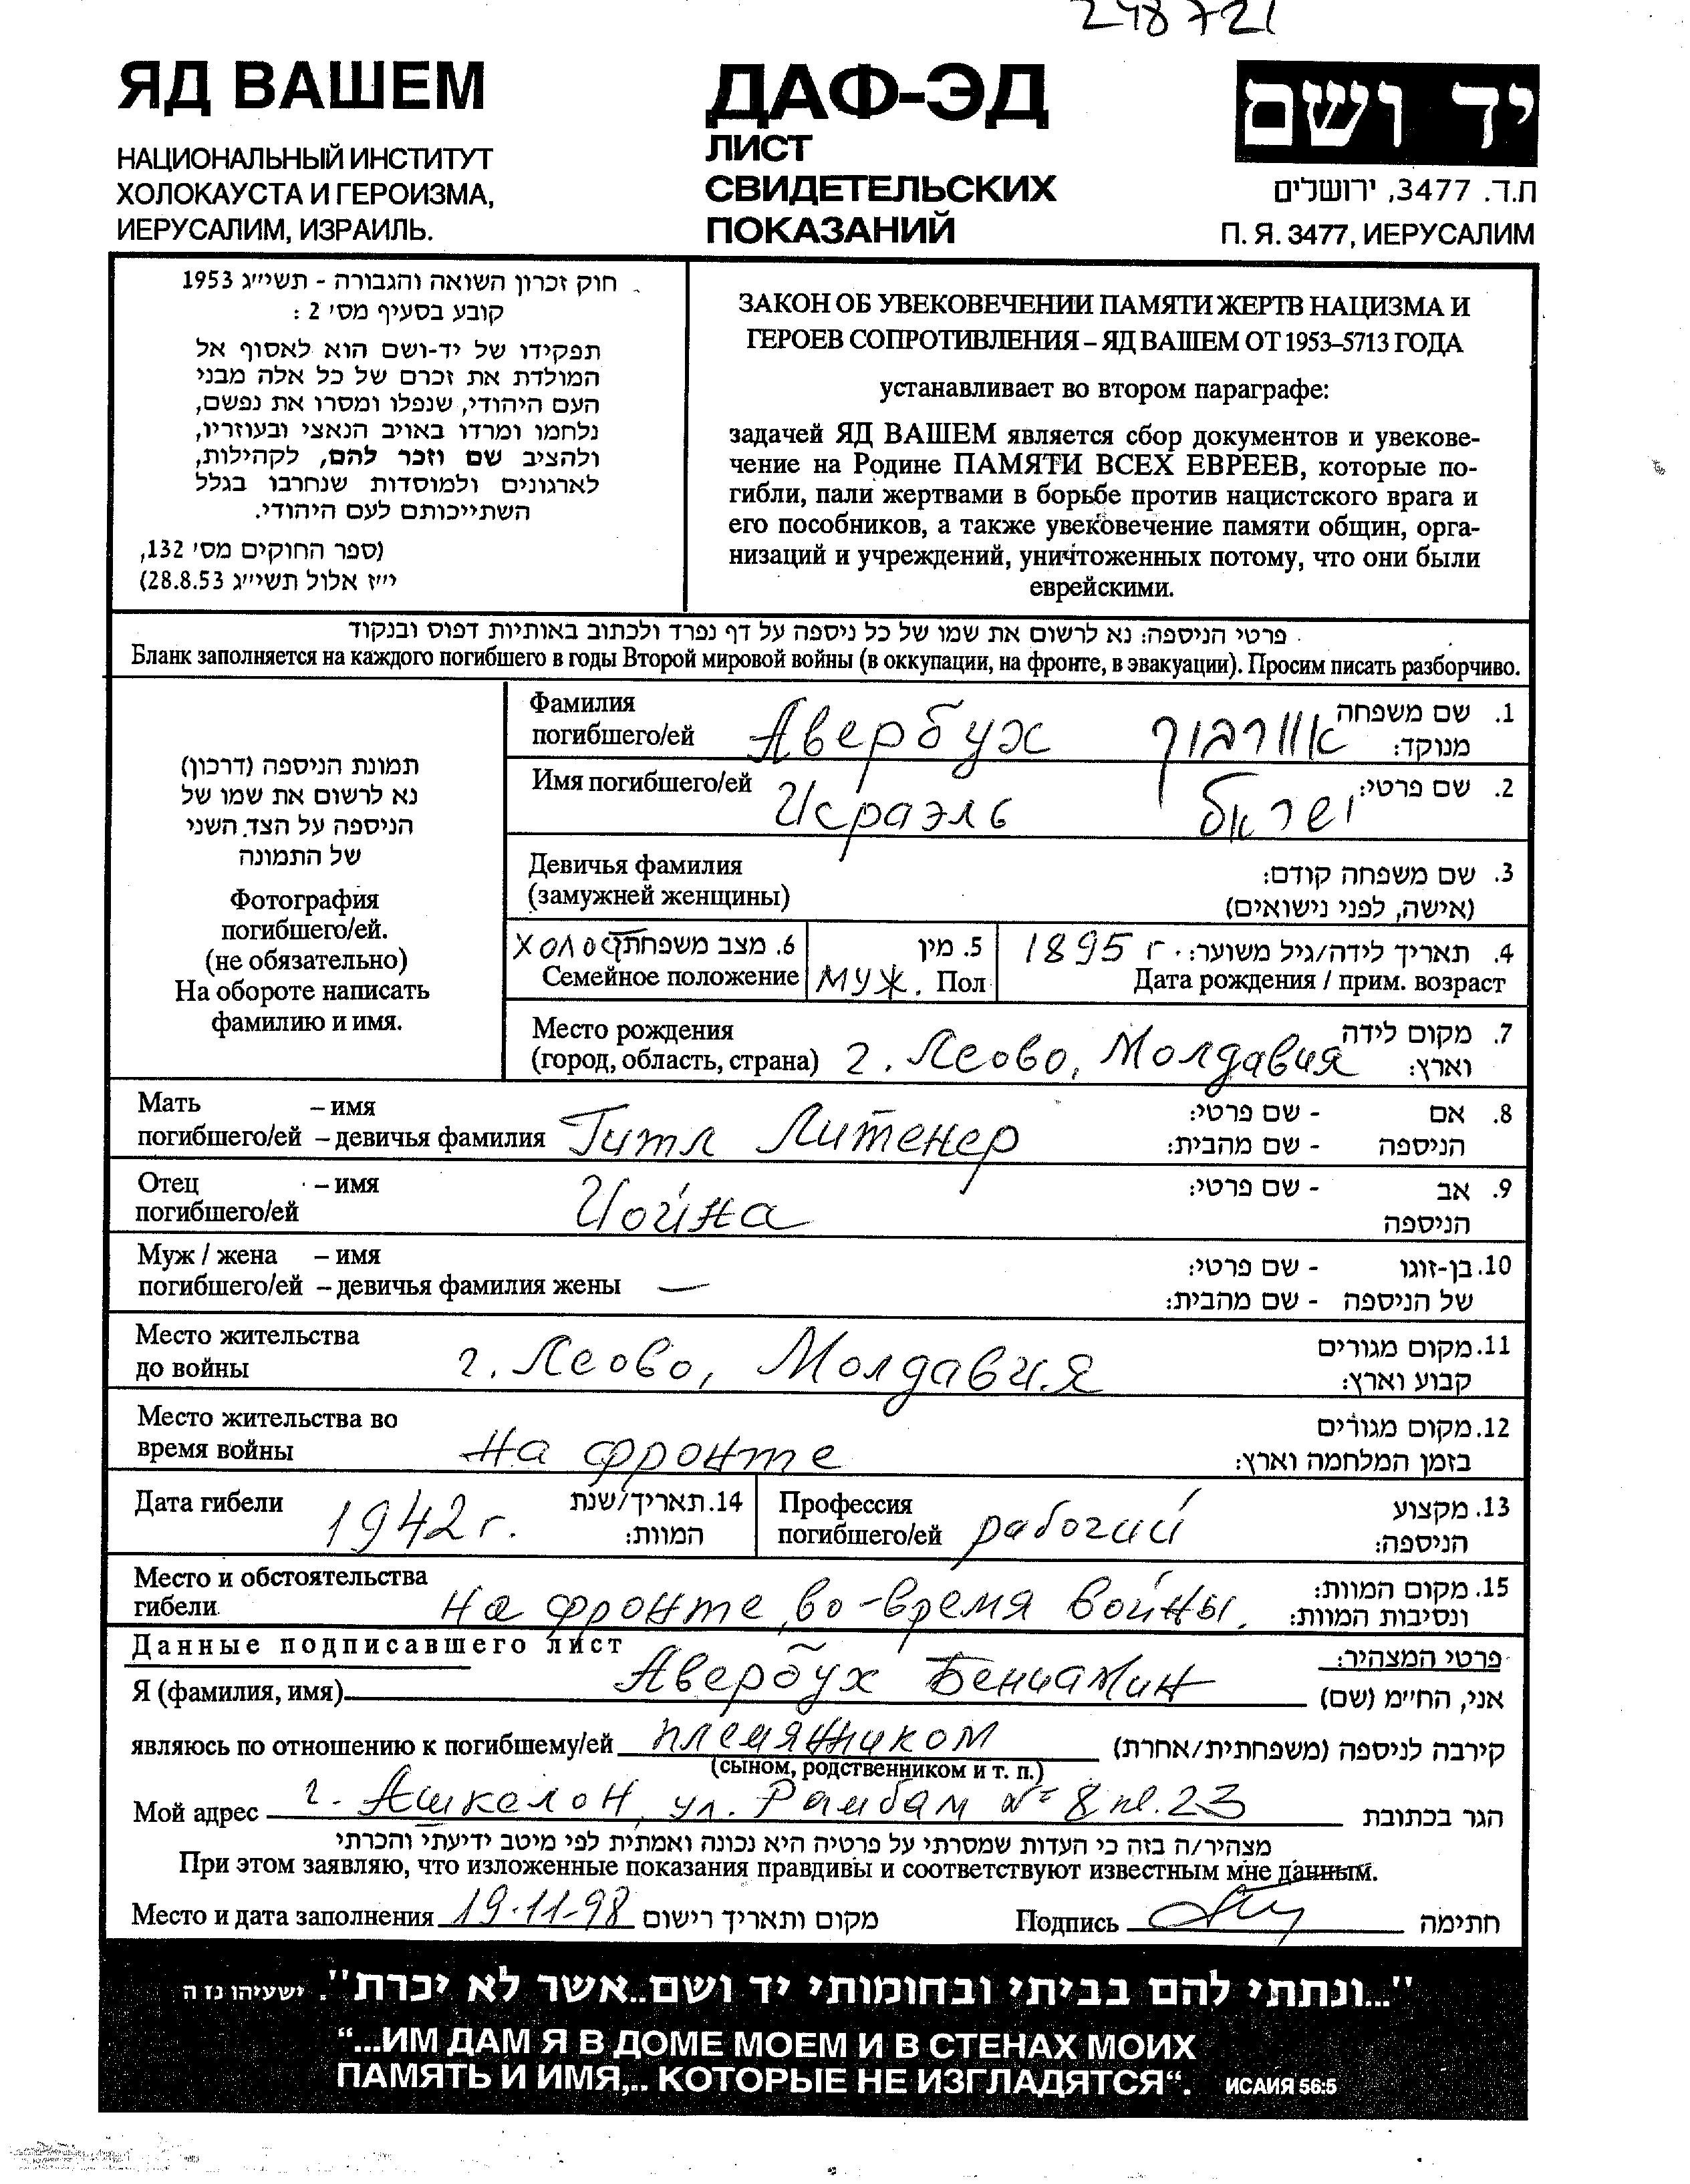 248721
ЯД ВАШЕМ
НАЦИОНАЛЬНЫЙ ИНСТИТУТ
ХОЛОКАУСТА И ГЕРОИЗМА,
ИЕРУСАЛИМ, ИЗРАИЛЬ.
ДАФ-ЭД
ЛИСТ
СВИДЕТЕЛЬСКИХ
ПОКАЗАНИЙ
יד ושם
ת.ד. 3477, ירושלים
П. Я. 3477, ИЕРУСАЛИМ
חוק זכרון השואה והגבורה - תשי״ג 1953
קובע בסעיף מס׳ 2 :
תפקידו של יד-ושם הוא לאסוף אל
המולדת את זכרם של כל אלה מבני
העם היהודי, שנפלו ומסרו את נפשם,
נלחמו ומרדו באויב הנאצי ובעוזריו,
ולהציב שם וזכר להם, לקהילות,
לארגונים ולמוסדות שנחרבו בגלל
השתייכותם לעם היהודי.
(ספר החוקים מס׳ 132,
י״ז אלול תשי״ג 28.8.53)
ЗАКОН ОБ УВЕКОВЕЧЕНИИ ПАМЯТИ ЖЕРТВ НАЦИЗМА И
ГЕРОЕВ СОПРОТИВЛЕНИЯ – ЯД ВАШЕМ ОТ 1953–5713 ГОДА
устанавливает во втором параграфе:
задачей ЯД ВАШЕМ является сбор документов и увекове-
чение на Родине ПАМЯТИ ВСЕХ ЕВРЕЕВ, которые по-
гибли, пали жертвами в борьбе против нацистского врага и
его пособников, а также увековечение памяти общин, орга-
низаций и учреждений, уничтоженных потому, что они были
еврейскими.
פרטי הניספה: נא לרשום את שמו של כל ניספה על דף נפרד ולכתוב באותיות דפוס ובנקוד
Бланк заполняется на каждого погибшего в годы Второй мировой войны (в оккупации, на фронте, в эвакуации). Просим писать разборчиво.
תמונת הניספה (דרכון)
נא לרשום את שמו של
הניספה על הצד השני
של התמונה
Фотография
погибшего/ей.
(не обязательно)
На обороте написать
фамилию и имя.
Фамилия
погибшего/ей Авербух אוורבוך
1. שם משפחה
מנוקד:
Имя погибшего/ей Исраэль ישראל 2. שם פרטי:
Девичья фамилия
(замужней женщины)
3. שם משפחה קודם:
(אישה, לפני נישואים)
холост 6. מצב משפחתי
Семейное положение
5. מין
муж. Пол
1895 г. 4. תאריך לידה/גיל משוער:
Дата рождения / прим. возраст
Место рождения
(город, область, страна) г. Леово, Молдавия
7. מקום לידה
וארץ:
Мать – имя
погибшего/ей – девичья фамилия Гитл Литенер
8. אם - שם פרטי:
הניספה - שם מהבית:
Отец – имя
погибшего/ей Иойна
9. אב - שם פרטי:
הניספה
Муж / жена – имя
погибшего/ей – девичья фамилия жены —
10. בן-זוגו - שם פרטי:
של הניספה - שם מהבית:
Место жительства
до войны г. Леово, Молдавия
11. מקום מגורים
קבוע וארץ:
Место жительства во
время войны на фронте
12. מקום מגורים
בזמן המלחמה וארץ:
Дата гибели 1942 г.
14. תאריך/שנת
המוות:
Профессия
погибшего/ей рабочий
13. מקצוע
הניספה:
Место и обстоятельства
гибели на фронте, во-время войны.
15. מקום המוות:
ונסיבות המוות:
Данные подписавшего лист
פרטי המצהיר:
Я (фамилия, имя) Авербух Бениамин אני, הח״מ (שם)
являюсь по отношению к погибшему/ей племянником קירבה לניספה (משפחתית/אחרת)
(сыном, родственником и т. п.)
Мой адрес г. Ашкелон, ул. Рамбам № 8 кв. 23 הגר בכתובת
מצהיר/ה בזה כי העדות שמסרתי על פרטיה היא נכונה ואמתית לפי מיטב ידיעתי והכרתי
При этом заявляю, что изложенные показания правдивы и соответствуют известным мне данным.
Место и дата заполнения 19.11.98 מקום ותאריך רישום Подпись חתימה
"...ונתתי להם בביתי ובחומותי יד ושם..אשר לא יכרת". ישעיהו נז ה
“...ИМ ДАМ Я В ДОМЕ МОЕМ И В СТЕНАХ МОИХ
ПАМЯТЬ И ИМЯ,.. КОТОРЫЕ НЕ ИЗГЛАДЯТСЯ“. ИСАИЯ 56:5